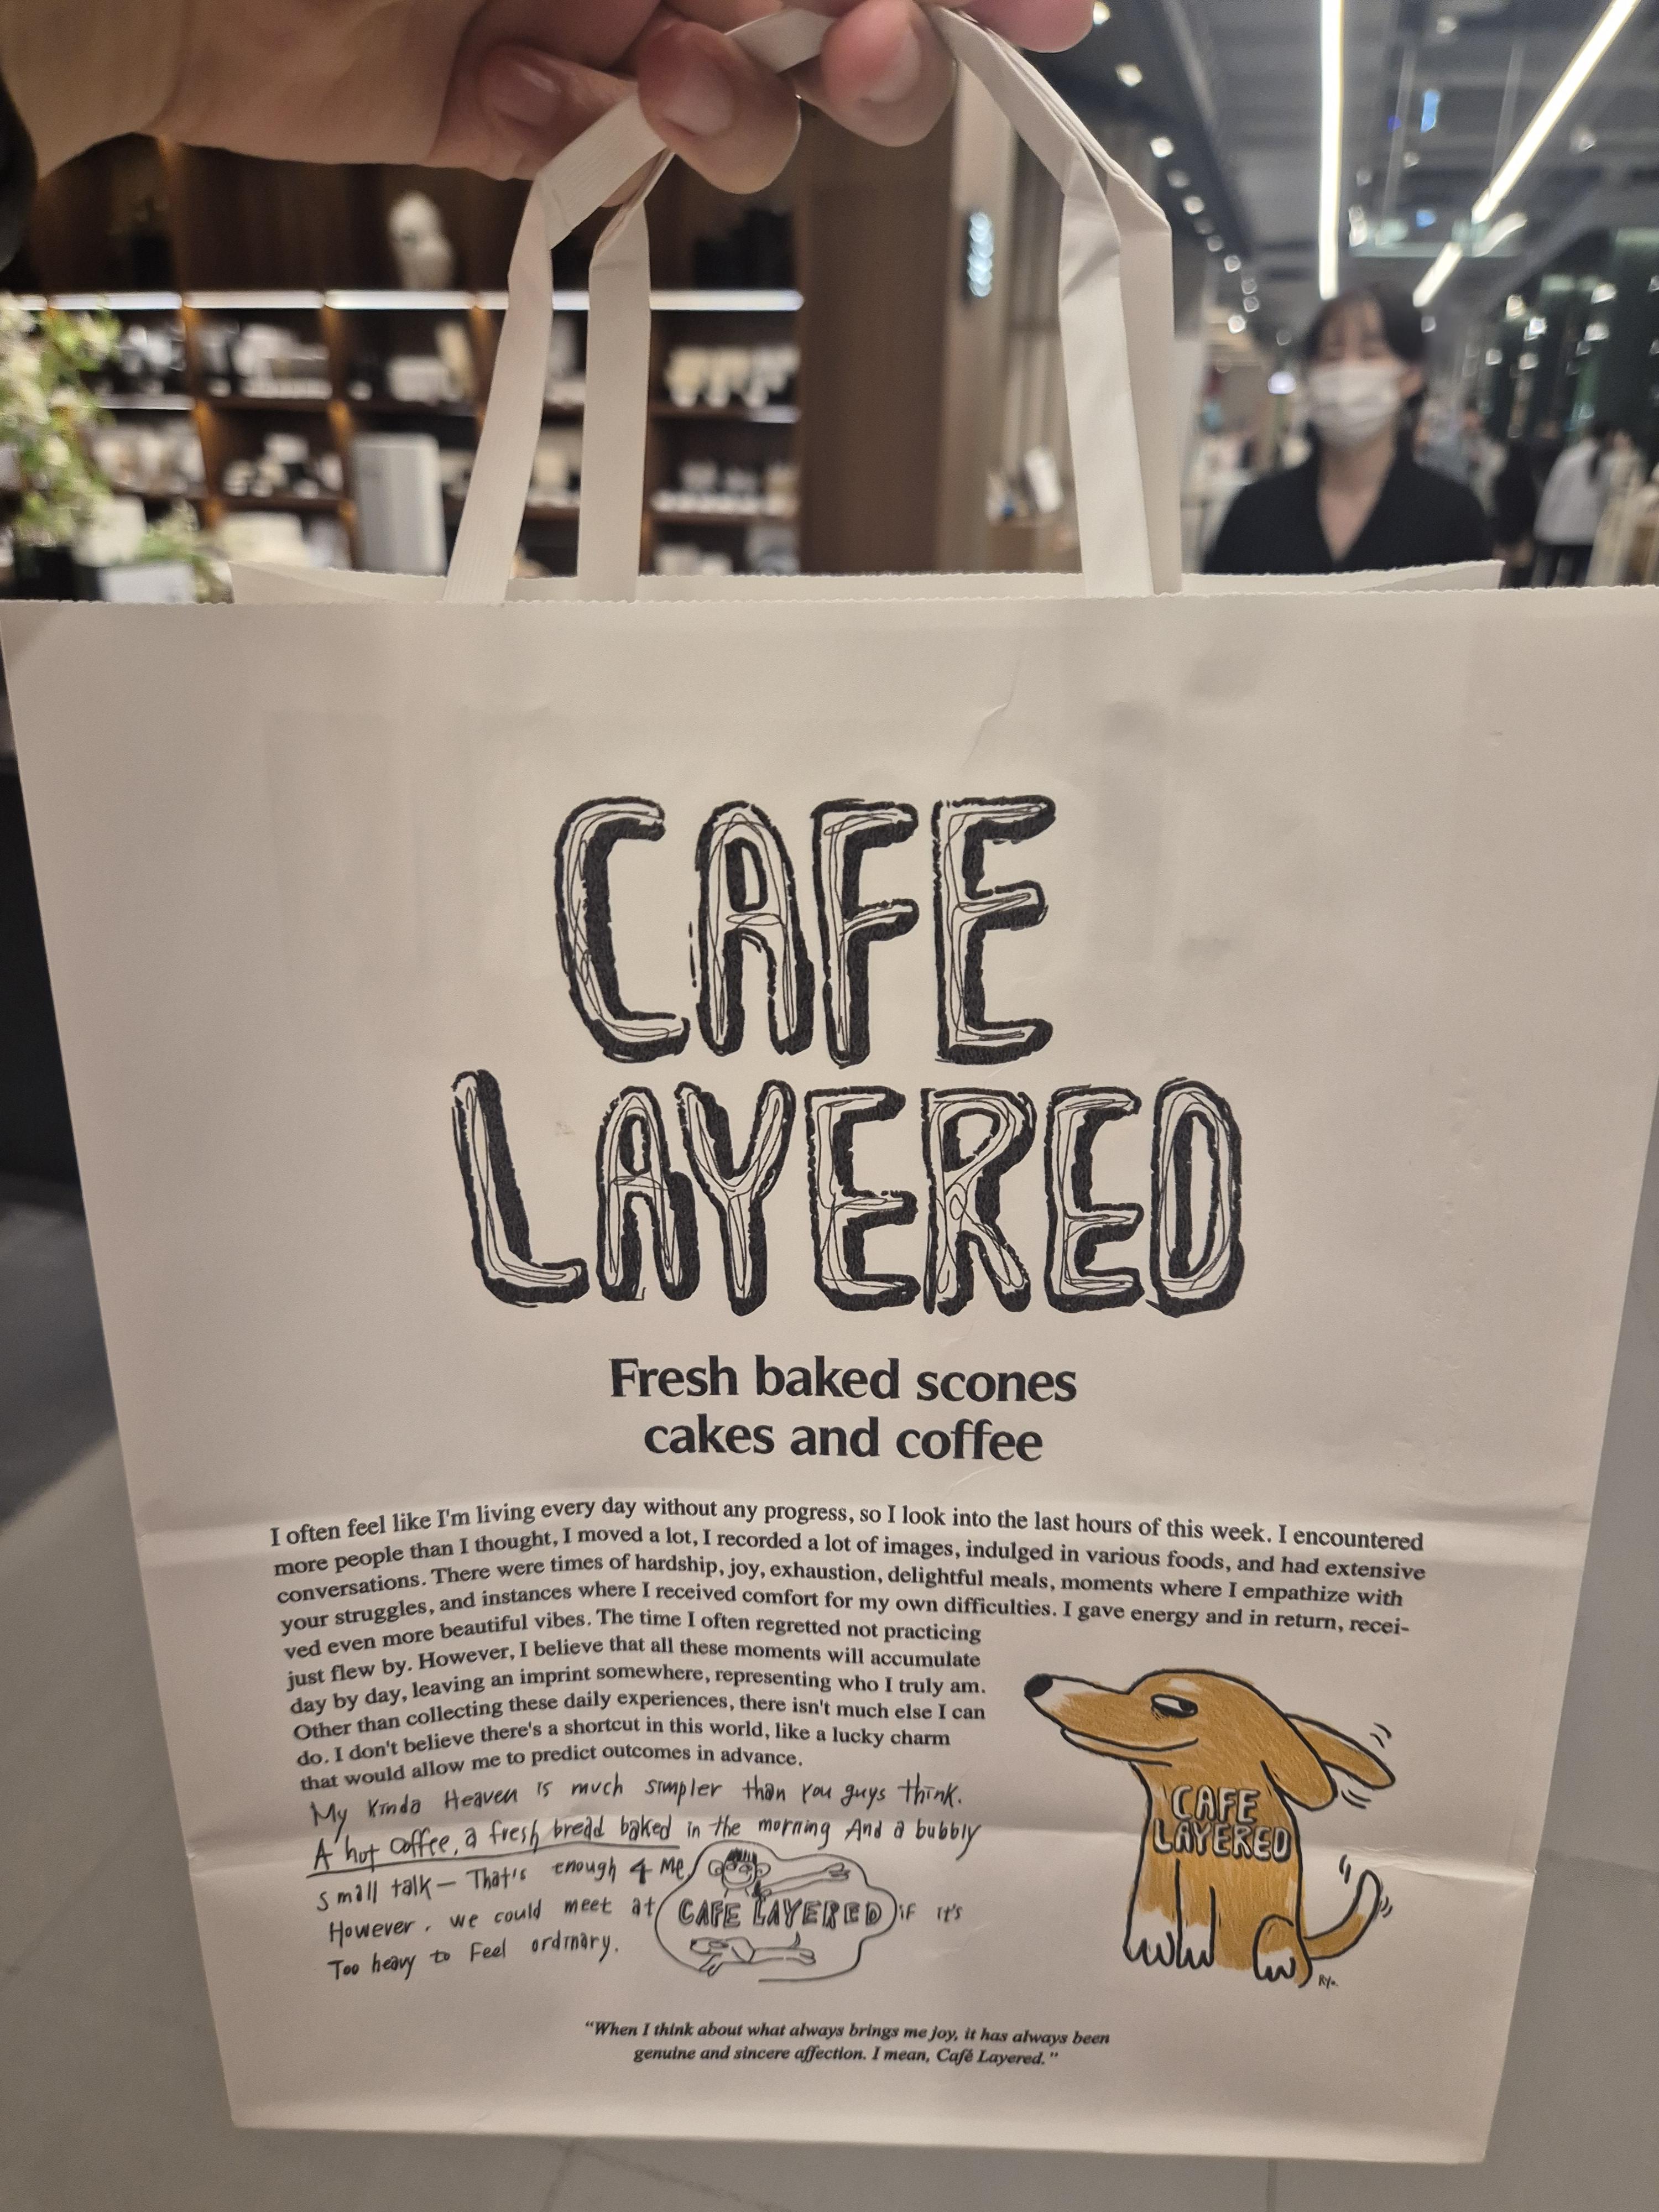 CAFE
LAYERED
Fresh baked scones
cakes and coffee
I often feel like I'm living every day without any progress, so I look into the last hours of this week. I encountered
more people than I thought, I moved a lot, I recorded a lot of images, indulged in various foods, and had extensive
conversations. There were times of hardship, joy, exhaustion, delightful meals, moments where I empathize with
your struggles, and instances where I received comfort for my own difficulties. I gave energy and in return, recei-
ved even more beautiful vibes. The time I often regretted not practicing
just flew by. However, I believe that all these moments will accumulate
day by day, leaving an imprint somewhere, representing who I truly am.
Other than collecting these daily experiences, there isn't much else I can
do. I don't believe there's a shortcut in this world, like a lucky charm
that would allow me to predict outcomes in advance.
My Kinda Heaven is much simpler than You guys Think.
A hot coffee, a fresh bread baked in the morning And a bubbly
small talk — That's enough 4 Me
However, we could meet at CAFE LAYERED if it's
Too heavy to Feel ordinary.
CAFE
LAYERED
Ryo.
"When I think about what always brings me joy, it has always been
genuine and sincere affection. I mean, Café Layered."